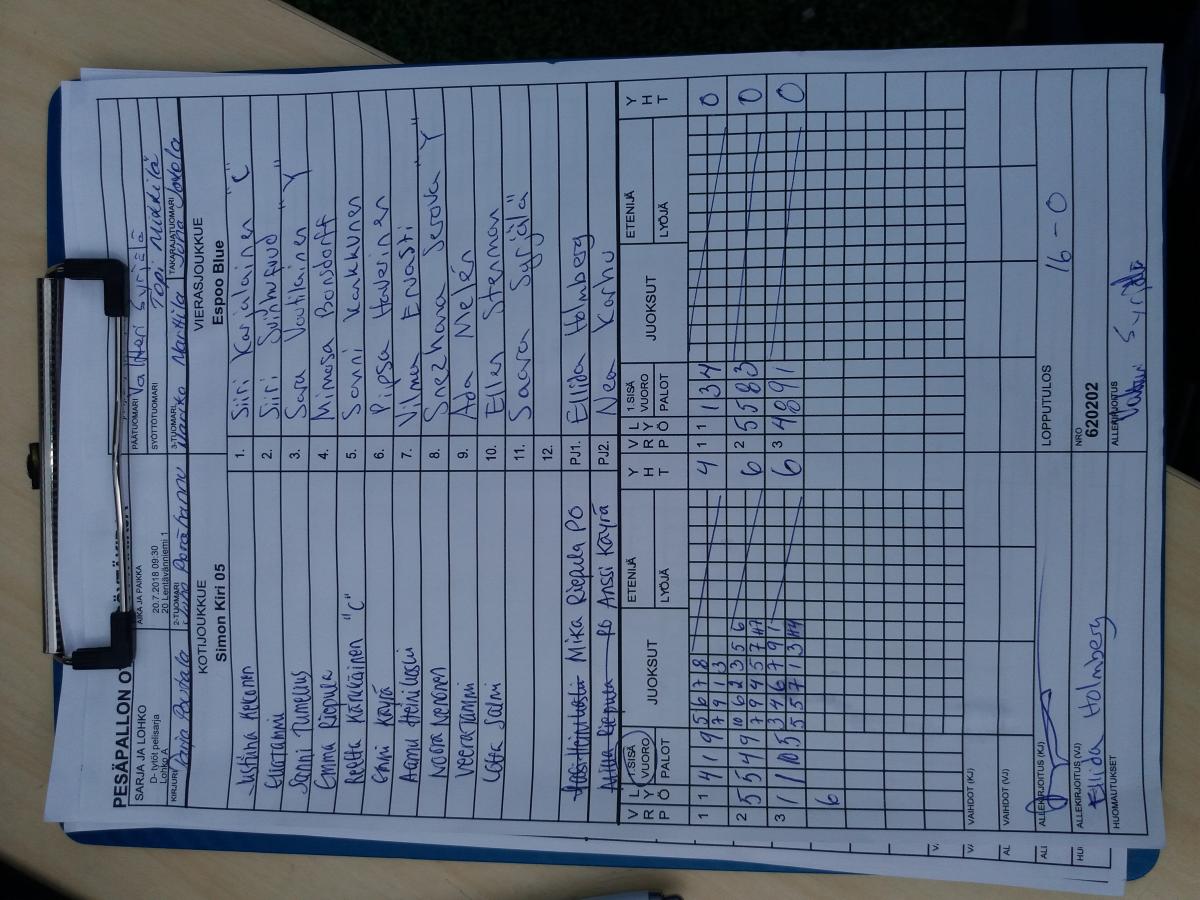 PESÄPALLON O
SARJA JA LOHKO
D- tytöt pelisarja
Lohko A
AIKA JA PAIKKA
20.7.2018 09:30
20 Lentävänniemi 1
PÄÄTUOMARI Valtteri Syrjälä
SYÖTTÖTUOMARI Topi Mikkilä
KIRJURI
2-TUOMARI
3-TUOMARI Marika Marttila
TAKARAJATUOMARI
KOTIJOUKKUE
Simon Kiri 05
VIERASJOUKKUE
Espoo Blue
Justiina Kekonen 1. Siiri Karjalainen "C"
2. Siiri Svinhufvud
Sanni Tumelius 3. Sara Voutilainen "Y"
Emma Riepula 4. Mimosa Bondorff
Reetta Kärkkäinen "C" 5. Sanni Karkkunen
Emmi Käyrä 6. Pipsa Haverinen
7. Vilma Ervasti
Noora Nenonen 8. Snezhana Serova "Y"
Veera Tammi 9. Ada Melén
Lotta Salmi 10. Ellen Stenman
11. Saara Syrjälä
12.
Mika Riepula PÖ PJ1. Ellida Holmberg
PÖ Anssi Käyrä PJ2. Nea Karhu
V L 1.SISÄ JUOKSUT ETENIJÄ Y V L 1.SISÄ JUOKSUT ETENIJÄ Y
R Y VUORO H R Y VUORO H
P Ö PALOT LYÖJÄ T P Ö PALOT LYÖJÄ T
1 1 4 1 9 5 6 7 8 4 1 1 1 3 4 0
7 9 1 3
2 5 5 4 9 10 6 2 3 5 6 6 2 5 5 8 3 0
7 9 4 5 7
3 1 1 10 5 3 4 6 7 9 1 6 3 4 8 9 1 0
5 5 7 1 3
6
VAIHDOT (KJ)
VAIHDOT (VJ)
ALLEKIRJOITUS (KJ)
LOPPUTULOS 16 - 0
ALLEKIRJOITUS (VJ)
Ellida Holmberg
NRO
620202
HUOMAUTUKSET
ALLEKIRJOITUS